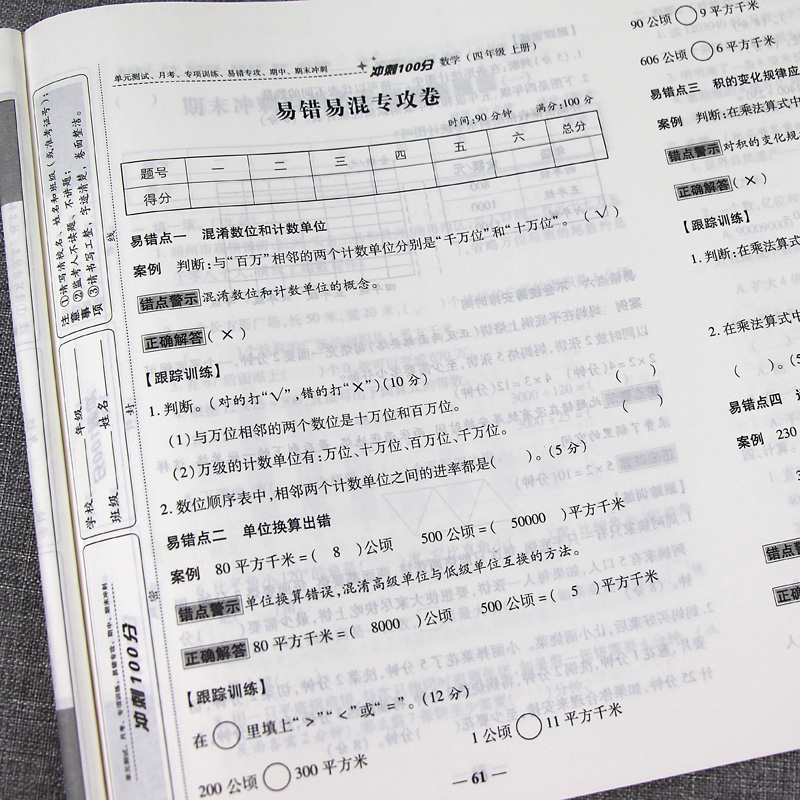 单元测试、月考、专项训练、易错专攻、期中、期末冲刺
冲刺100分 数学（四年级 上册）
易错易混专攻卷
时间:90 分钟 满分:100 分
题号 一 二 三 四 五 六 总分
得分
易错点一 混淆数位和计数单位
案例 判断:与“百万”相邻的两个计数单位分别是“千万位”和“十万位”。（√）
错点警示 混淆数位和计数单位的概念。
正确解答（×）
【跟踪训练】
1.判断。（对的打“√”,错的打“×”）（10分）
（1）与万位相邻的两个数位是十万位和百万位。（ ）
（2）万级的计数单位有:万位、十万位、百万位、千万位。（ ）
2.数位顺序表中,相邻两个计数单位之间的进率都是（ ）。（5分）
易错点二 单位换算出错
案例 80平方千米=（ 8 ）公顷 500公顷=（ 50000 ）平方千米
错点警示 单位换算错误,混淆高级单位与低级单位互换的方法。
正确解答 80平方千米=（ 8000 ）公顷 500公顷=（ 5 ）平方千米
【跟踪训练】
在○里填上“>”“<”或“=”。（12分）
200公顷○300平方千米 1公顷○11平方千米
— 61 —
90公顷○9平方千米
606公顷○6平方千米
易错点三 积的变化规律应
案例 判断:在乘法算式中
错点警示 对积的变化规
正确解答（×）
【跟踪训练】
1.判断:在乘法算式
2.在乘法算式中
（ ）。（5
易错点四
案例 230
错点警示
正确解
注意事项
①请写清校名、姓名和班级（或准考证号）；
②监考人不读题、不讲题；
③请书写工整，字迹清楚，卷面整洁。
线
封
密
学校
年级
班级
姓名
冲刺100分
单元测试、月考、专项训练、易错专攻、期中、期末冲刺